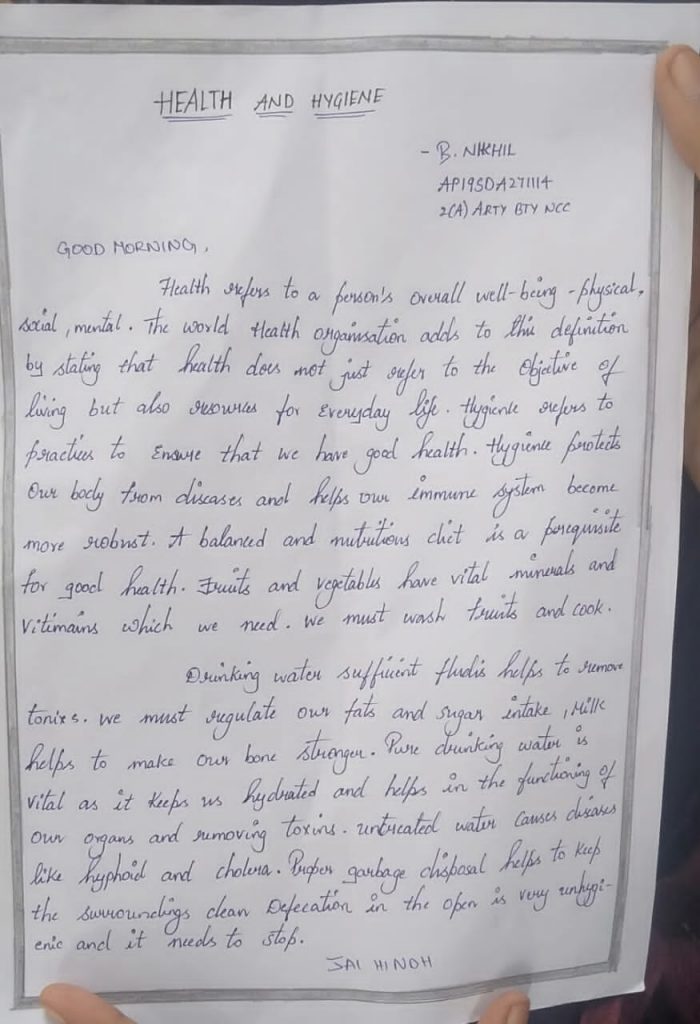 HEALTH AND HYGIENE
- B. NIKHIL
AP19SDA271114
2(A) ARTY BTY NCC
GOOD MORNING,
Health refers to a person's overall well-being - physical,
social, mental. The world Health organisation adds to this definition
by stating that health does not just refer to the Objective of
living but also resources for Everyday life. Hygiene refers to
practices to Ensure that we have good health. Hygience protects
Our body from diseases and helps our immune system become
more robust. A balanced and nutritious diet is a porequisite
for good health. Fruits and vegetables have vital minerals and
Vitimains which we need. We must wash fruits and cook.
Drinking water sufficient fludis helps to remove
tonixs. we must regulate our fats and sugar intake, Milk
helps to make our bone stronger. Pure drinking water is
vital as it keeps us hydrated and helps in the functioning of
our organs and removing toxins. untreated water causes diseases
like hyphoid and cholera. Proper garbage disposal helps to keep
the surroundings clean Defecation in the open is very unhygi-
enic and it needs to stop.
JAI HINDH